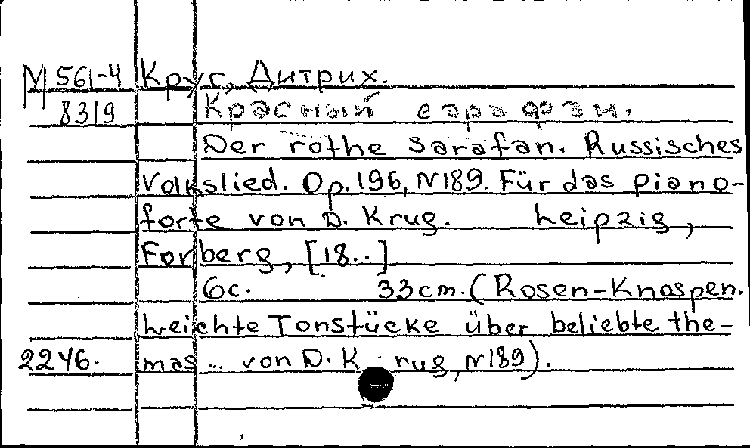 М 561-4 Круг, Дитрих.
8319 Красный сарафан.
Der rothe Sarafan. Russisches
Volkslied. Op. 196, N189. Für das piano-
forte von D. Krug. Leipzig,
Forberg, [18..]
6с. 33cm. (Rosen-Knospen.
Leichte Tonstücke über beliebte the-
2246. mas... von D. K rug, N189).